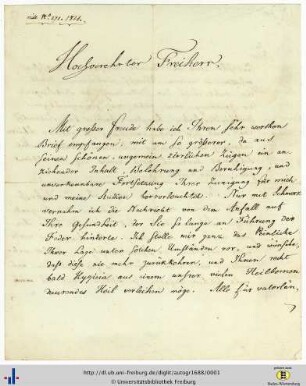 Hochverehrter Freiherr.
Mit großer Freude habe ich Ihren sehr werthen
Brief empfangen, mit um so größerer, da aus
seinen schönen, ungemein zierlichen Zügen ein an-
ziehender Inhalt, Belehrung und Beruhigung, und
unverkennbare Fortsetzung Ihrer Zuneigung für mich
und meine Studien hervorleuchtet. Nur mit Schmerz
vernahm ich die Nachricht von dem Anfall auf
Ihre Gesundheit, der Sie so lange an Führung der
Feder hinderte. Ich stelle mir ganz das Peinliche
Ihrer Lage unter solchen Umständen vor, und wünsche,
daß diese nie mehr zurückkehren, und Ihnen recht
bald Hygieia aus einem unsrer vielen Heilbronnen
dauerndes Heil verleihen möge. Alle für vaterlän,
http://dl.ub.uni-freiburg.de/diglit/autogr1688/0001
© Universitätsbibliothek Freiburg
gefördert durch
Baden-Württemberg